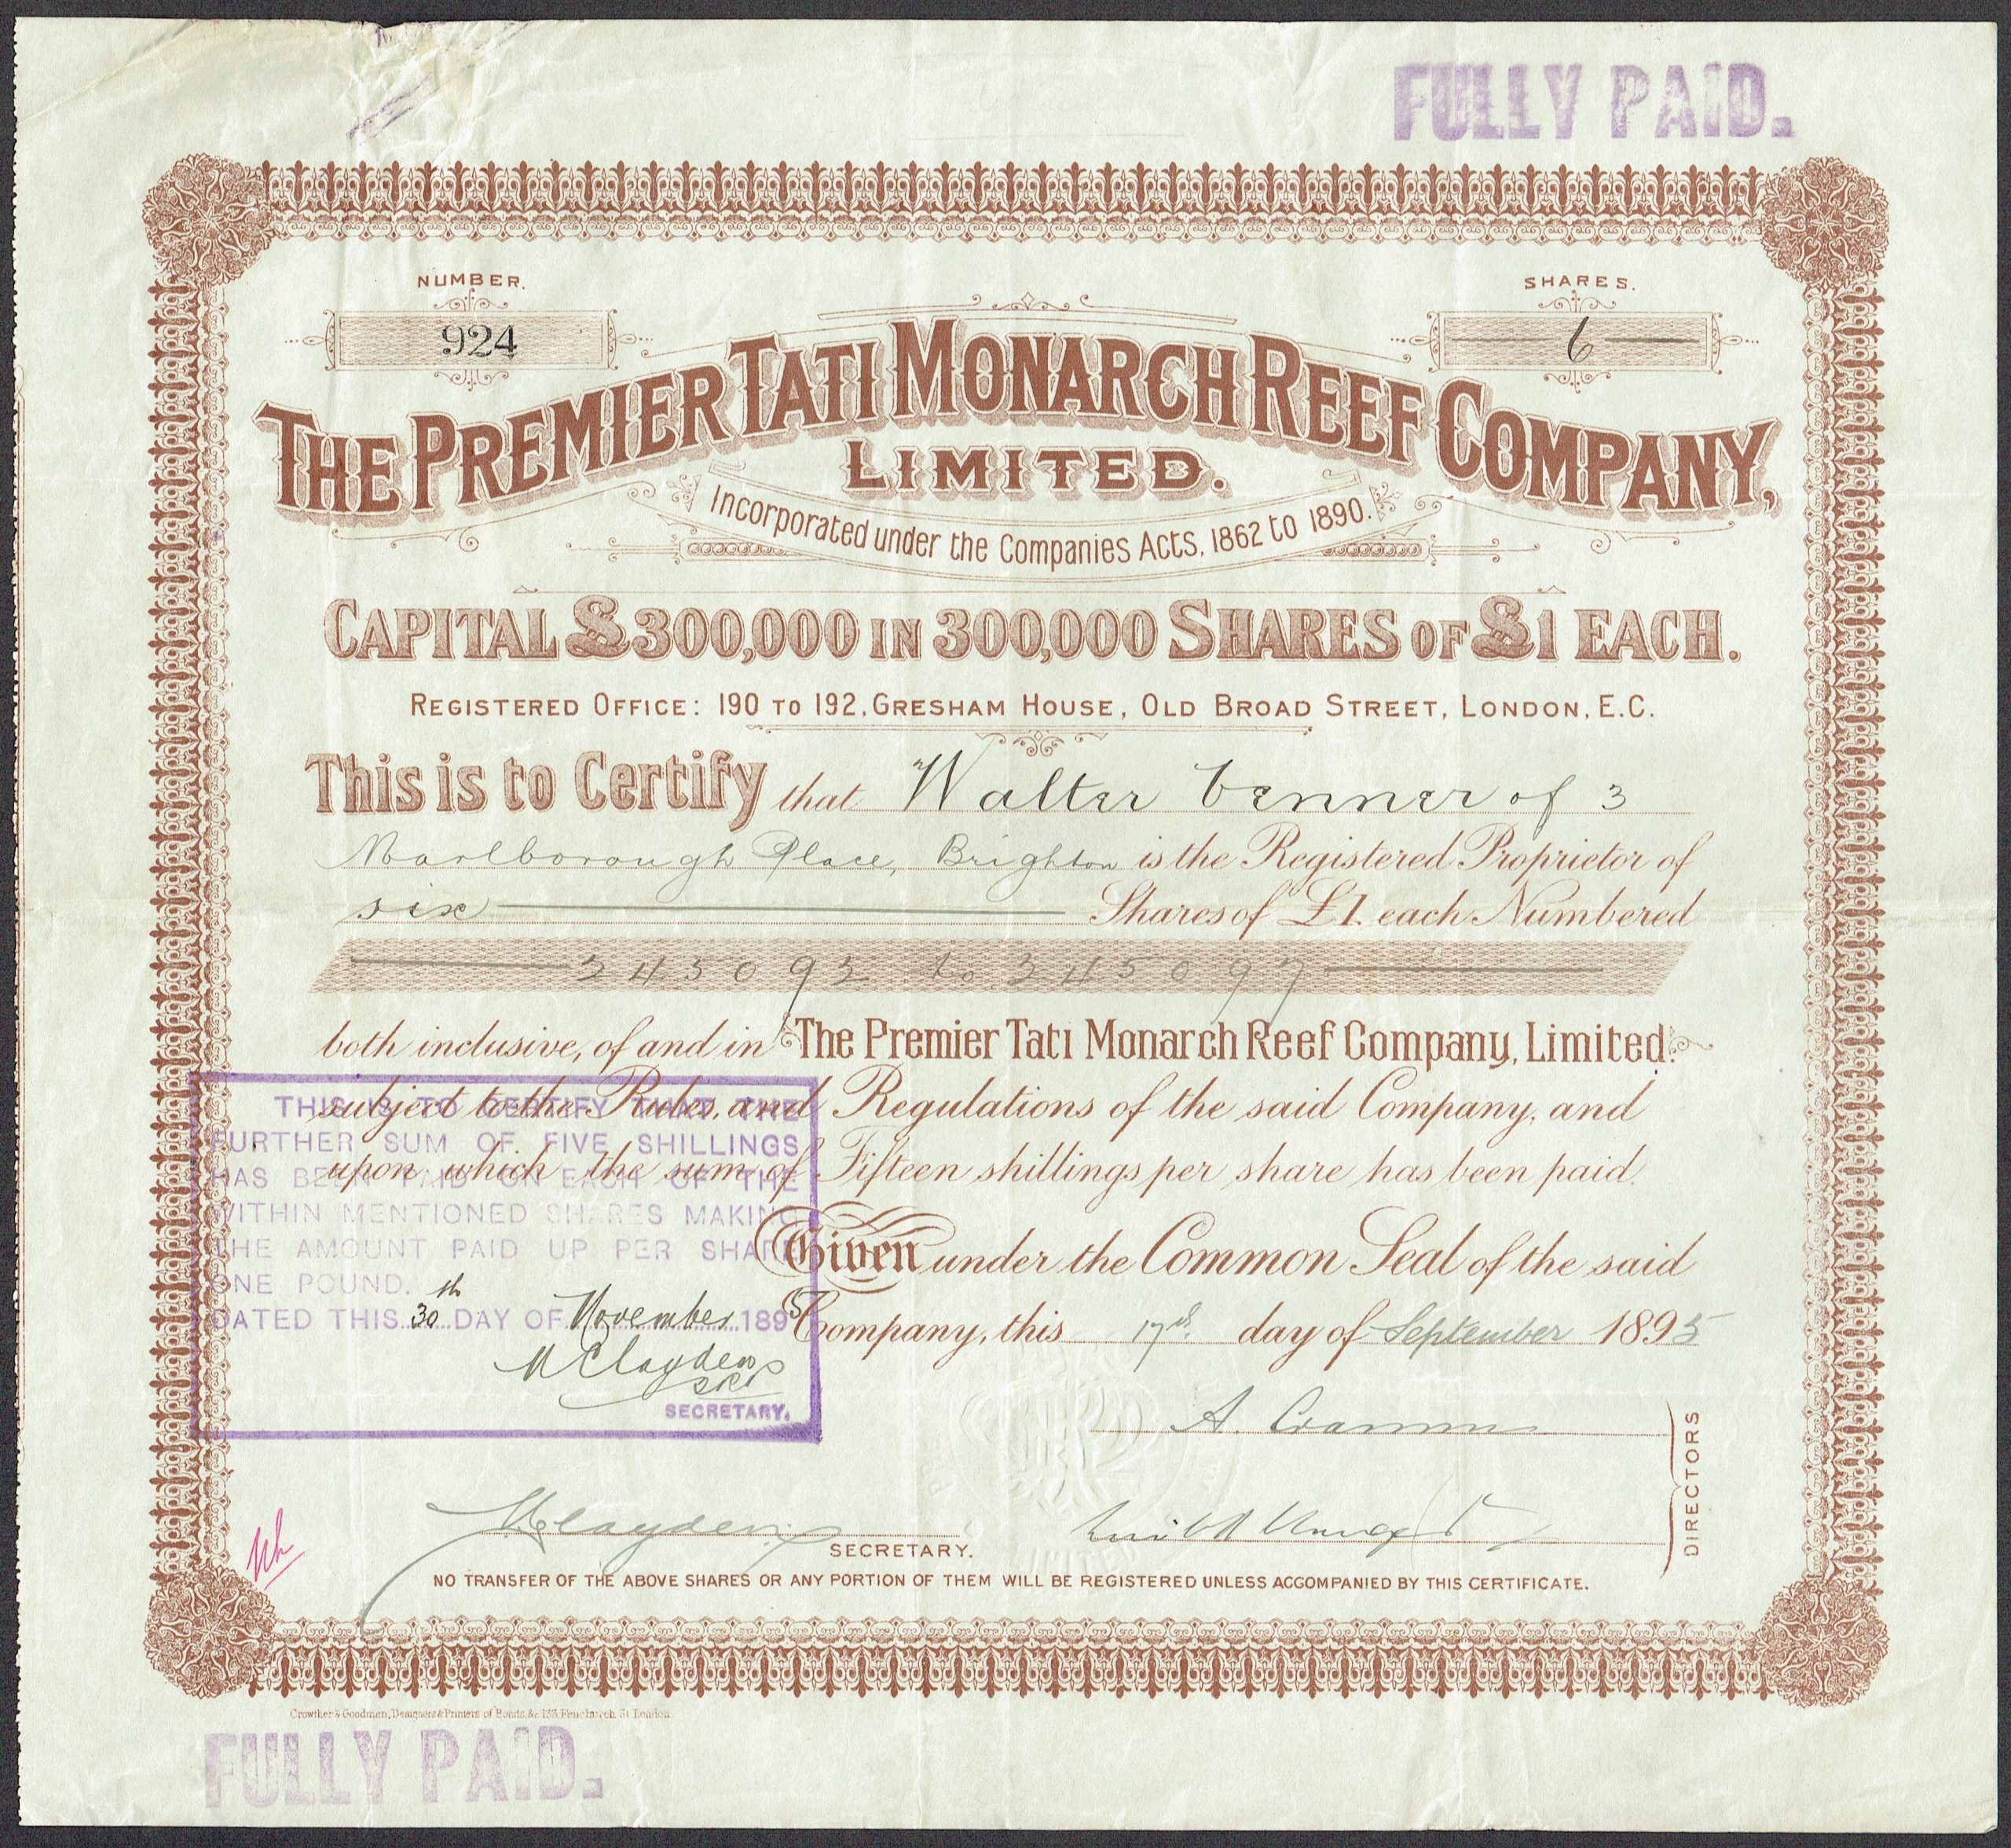 FULLY PAID.
NUMBER.
924
SHARES.
6
THE PREMIER TATI MONARCH REEF COMPANY,
LIMITED.
Incorporated under the Companies Acts, 1862 to 1890.
CAPITAL £300,000 IN 300,000 SHARES OF £1 EACH.
REGISTERED OFFICE: 190 TO 192, GRESHAM HOUSE, OLD BROAD STREET, LONDON, E.C.
This is to Certify that Walter Venner of 3
Marlborough Place, Brighton is the Registered Proprietor of
six Shares of £1. each Numbered
to
both inclusive, of and in The Premier Tati Monarch Reef Company, Limited.
subject to the Rules, and Regulations of the said Company, and
upon which the sum of Fifteen shillings per share has been paid.
Given under the Common Seal of the said
Company, this 17th day of September 1895
THIS IS TO CERTIFY THAT THE
FURTHER SUM OF FIVE SHILLINGS
HAS BEEN PAID ON EACH OF THE
WITHIN MENTIONED SHARES MAKING
THE AMOUNT PAID UP PER SHARE
ONE POUND.
DATED THIS 30th DAY OF November 1895
Clayden
SECRETARY.
A.
DIRECTORS
Clayden
SECRETARY.
NO TRANSFER OF THE ABOVE SHARES OR ANY PORTION OF THEM WILL BE REGISTERED UNLESS ACCOMPANIED BY THIS CERTIFICATE.
Crowther & Goodman, Designers & Printers of Bonds, &c. 133, Fenchurch St. London
FULLY PAID.